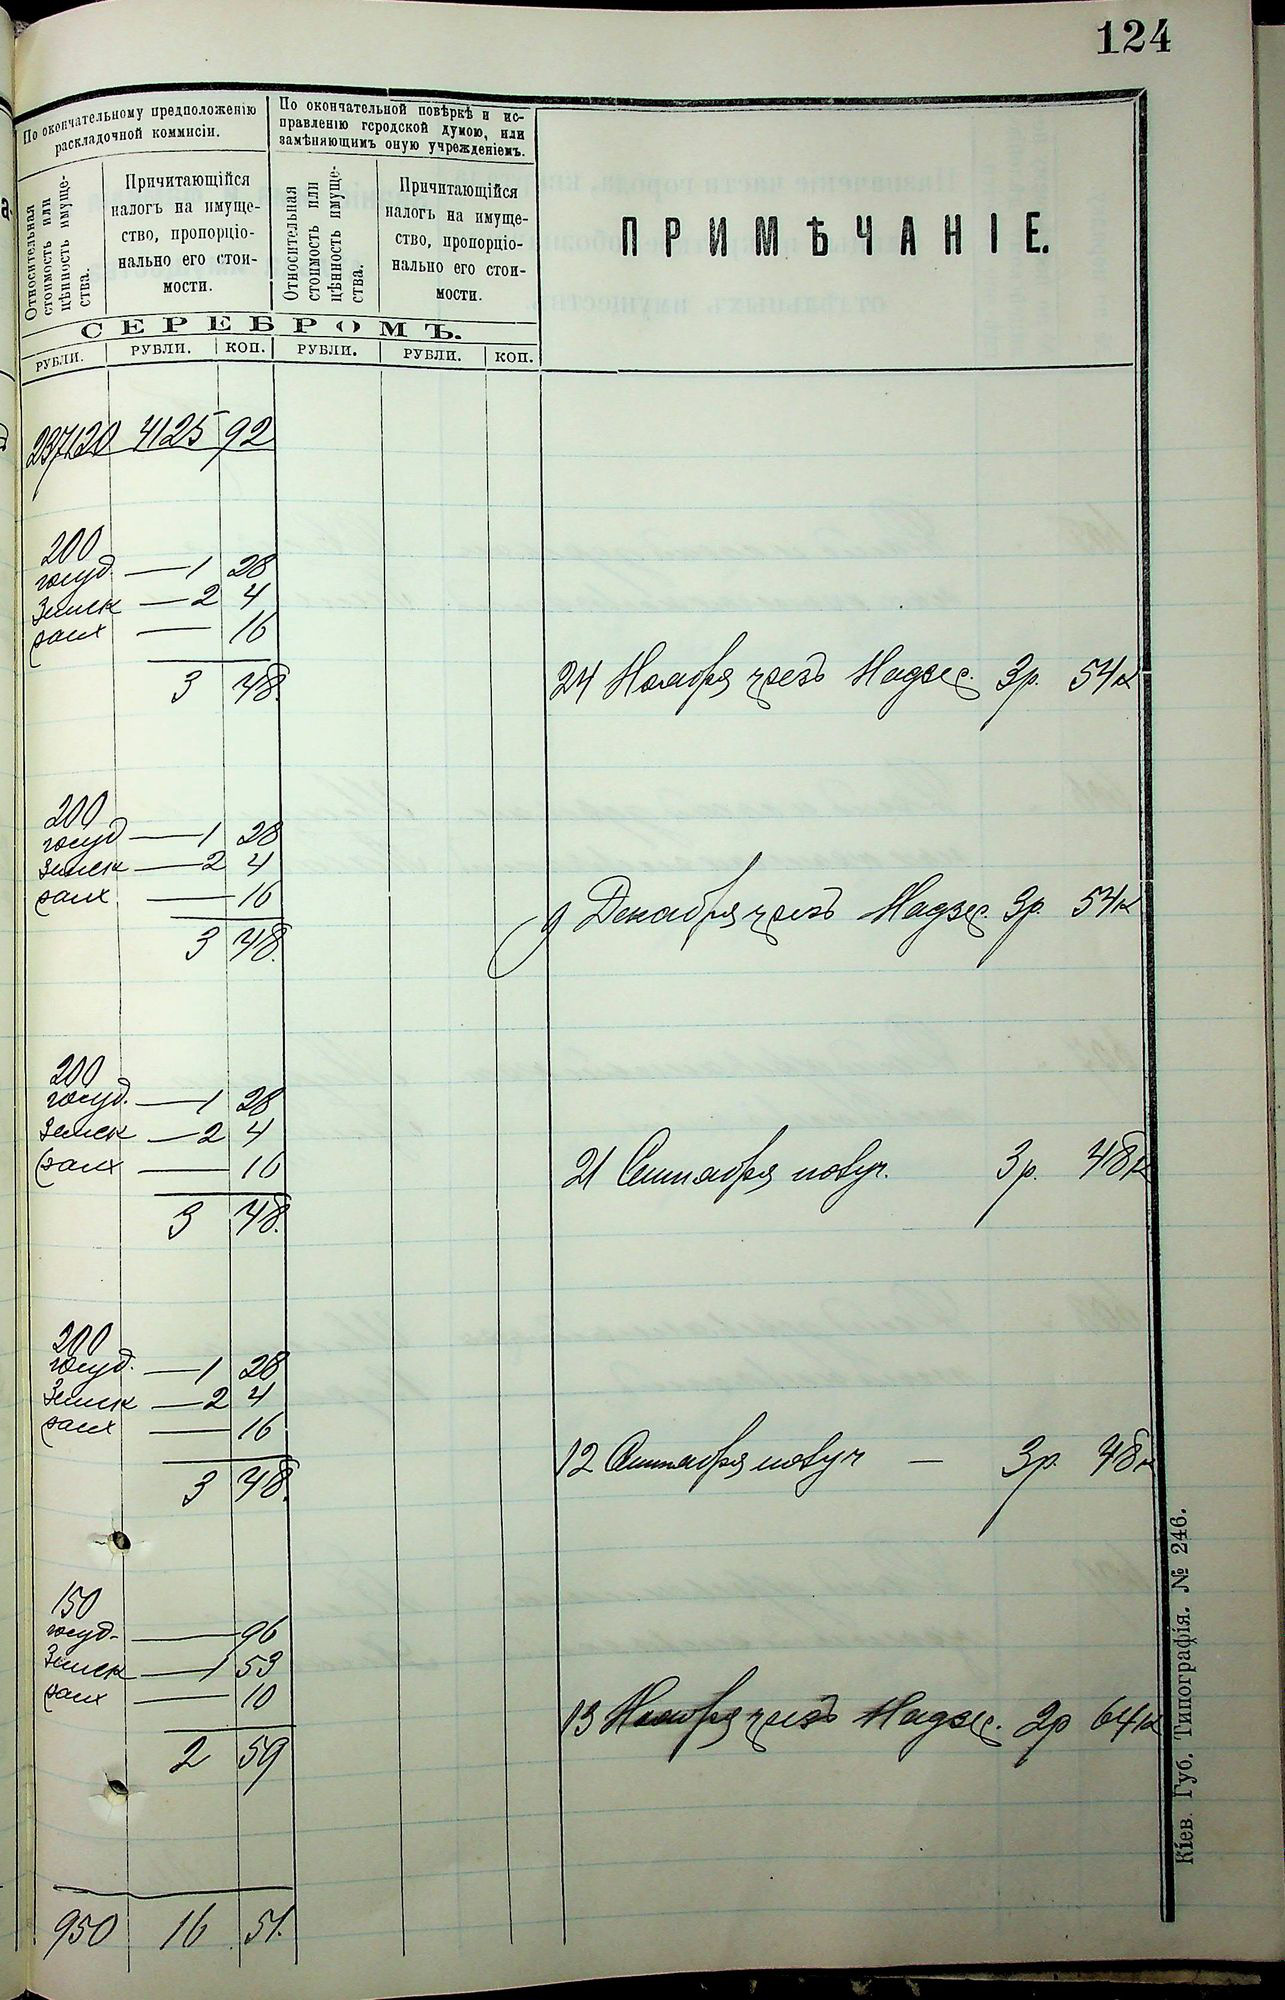 124
По окончательному предположенію
раскладочной коммисіи.
По окончательной повѣркѣ и ис-
правленію городской думою, или
замѣняющимъ оную учрежденіемъ.
Относительная
стоимость или
цѣнность имуще-
ства.
Причитающійся
налогъ на имуще-
ство, пропорціо-
нально его стои-
мости.
Относительная
стоимость или
цѣнность имуще-
ства.
Причитающійся
налогъ на имуще-
ство, пропорціо-
нально его стои-
мости.
ПРИМѢЧАНІЕ.
СЕРЕБРОМЪ.
РУБЛИ. РУБЛИ. КОП. РУБЛИ. РУБЛИ. КОП.
237120 4125 92
200
госуд. — 1 28
Земск — 2 4
— 16
3 48.
24 Ноября чрезъ Надзе. 3р. 54к
200
госуд — 1 28
Земск — 2 4
— 16
3 48.
9 Декабря чрезъ Надзе. 3р. 54к
200
госуд. — 1 28
Земск — 2 4
— 16
3 48.
21 Сентября 3р. 48к
200
госуд. — 1 28
Земск — 2 4
— 16
3 48.
12 Сентября — 3р. 48к
150
госуд. — 96
Земск — 1 53
— 10
2 59
13 Ноября чрезъ Надзе. 2р 64к
950 16 51.
Кіев. Губ. Типографія. № 246.